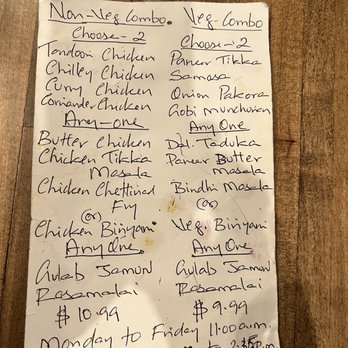 Non-Veg Combo.
Choose-2
Tandoori Chicken
Chilley Chicken
Curry Chicken
Coriander Chicken
Any-one
Butter Chicken
Chicken Tikka
Masala
Chicken Chettinad
Fry
(or)
Chicken Biriyani
Any One
Gulab Jamun
Rasamalai
$ 10.99
Veg-Combo
Choose-2
Paneer Tikka
Samosa
Onion Pakora
Gobi Munchurian
Any One
Dal. Taduka
Paneer Butter
Masala
Bindhi Masala
(or)
Veg. Biriyani
Any One
Gulab Jamun
Rasamalai
$ 9.99
Monday to Friday 11:00 a.m.
to